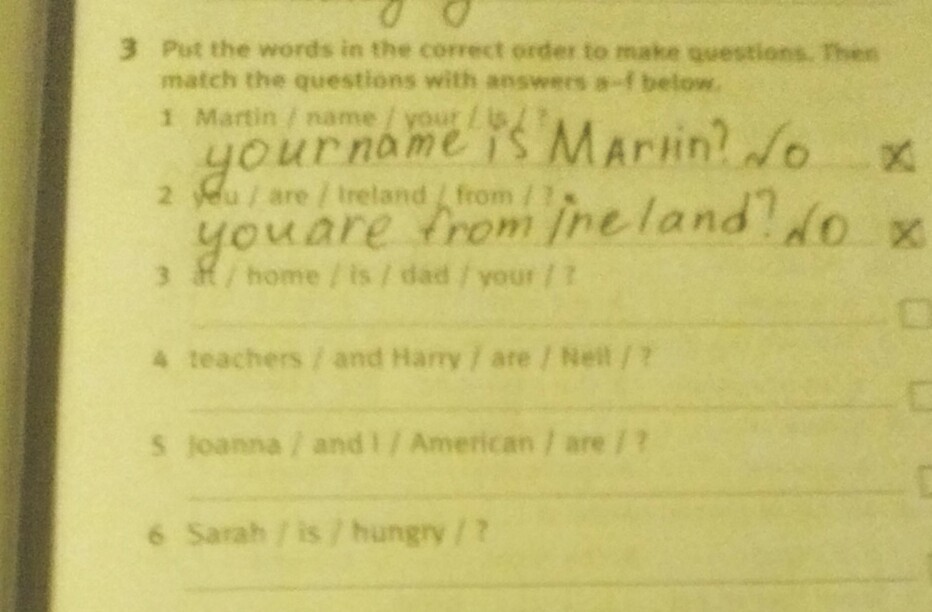 3 Put the words in the correct order to make questions. Then
match the questions with answers a–f below.
1 Martin / name / your / is / ?
your name is Martin? No x
2 you / are / Ireland / from / ?
you are from ireland? No x
3 at / home / is / dad / your / ?
4 teachers / and Harry / are / Neil / ?
5 Joanna / and I / American / are / ?
6 Sarah / is / hungry / ?